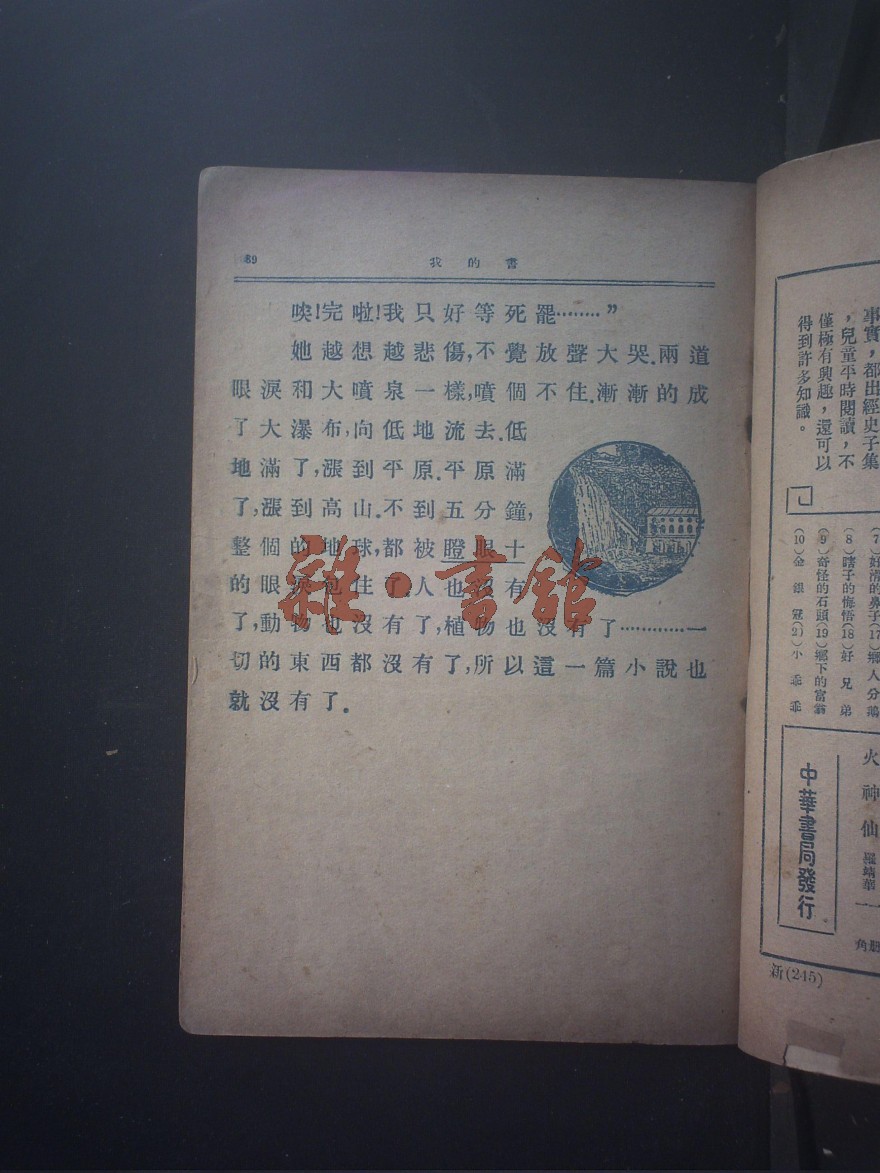 89
我的書
唉!完啦!我只好等死罷………”
她越想越悲傷,不覺放聲大哭.兩道
眼淚和大噴泉一樣,噴個不住.漸漸的成
了大瀑布,向低地流去.低
地滿了,漲到平原.平原滿
了,漲到高山.不到五分鐘,
整個的地球,都被瞪眼十
的眼淚包住了.人也沒有
了,動物也沒有了,植物也沒有了…………一
切的東西都沒有了,所以這一篇小說也
就沒有了.
雜·書館
事實,都出經史子集
,兒童平時閱讀,不
僅極有興趣,還可以
得到許多知識。
(7)好清的鼻子(17)鄉人分鵝
(8)瞎子的悔悟(18)好兄弟
(9)奇怪的石頭(19)鄉下的富翁
(10)金銀冠(2)小乖乖
火神仙 羅靖華 一 角
中華書局發行
新(245)